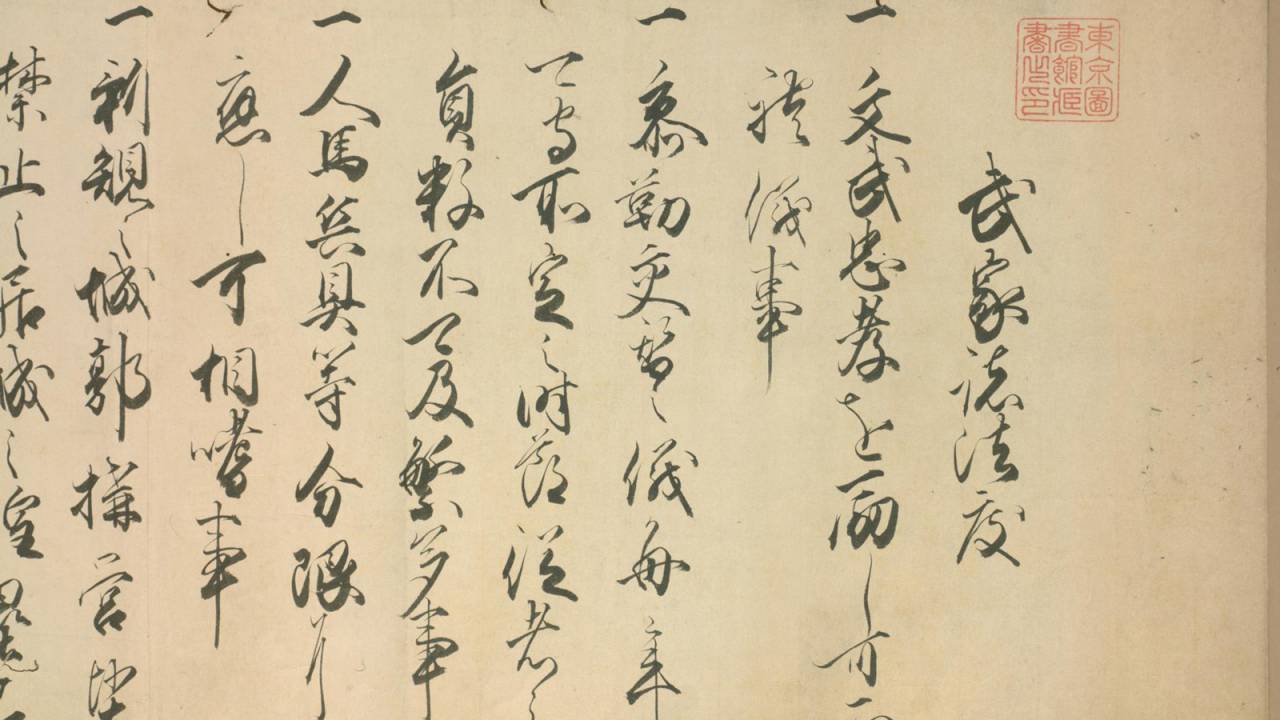 東京圖
書館藏
書之印
武家諸法度
一文武忠孝を励し可
禮儀事
一参勤交替之儀毎年
可守所定之時節従者之
員数不可及繁多事
一人馬兵具等分限に
應し可相嗜事
一新規之城郭構営堅
禁止之居城之隍塁